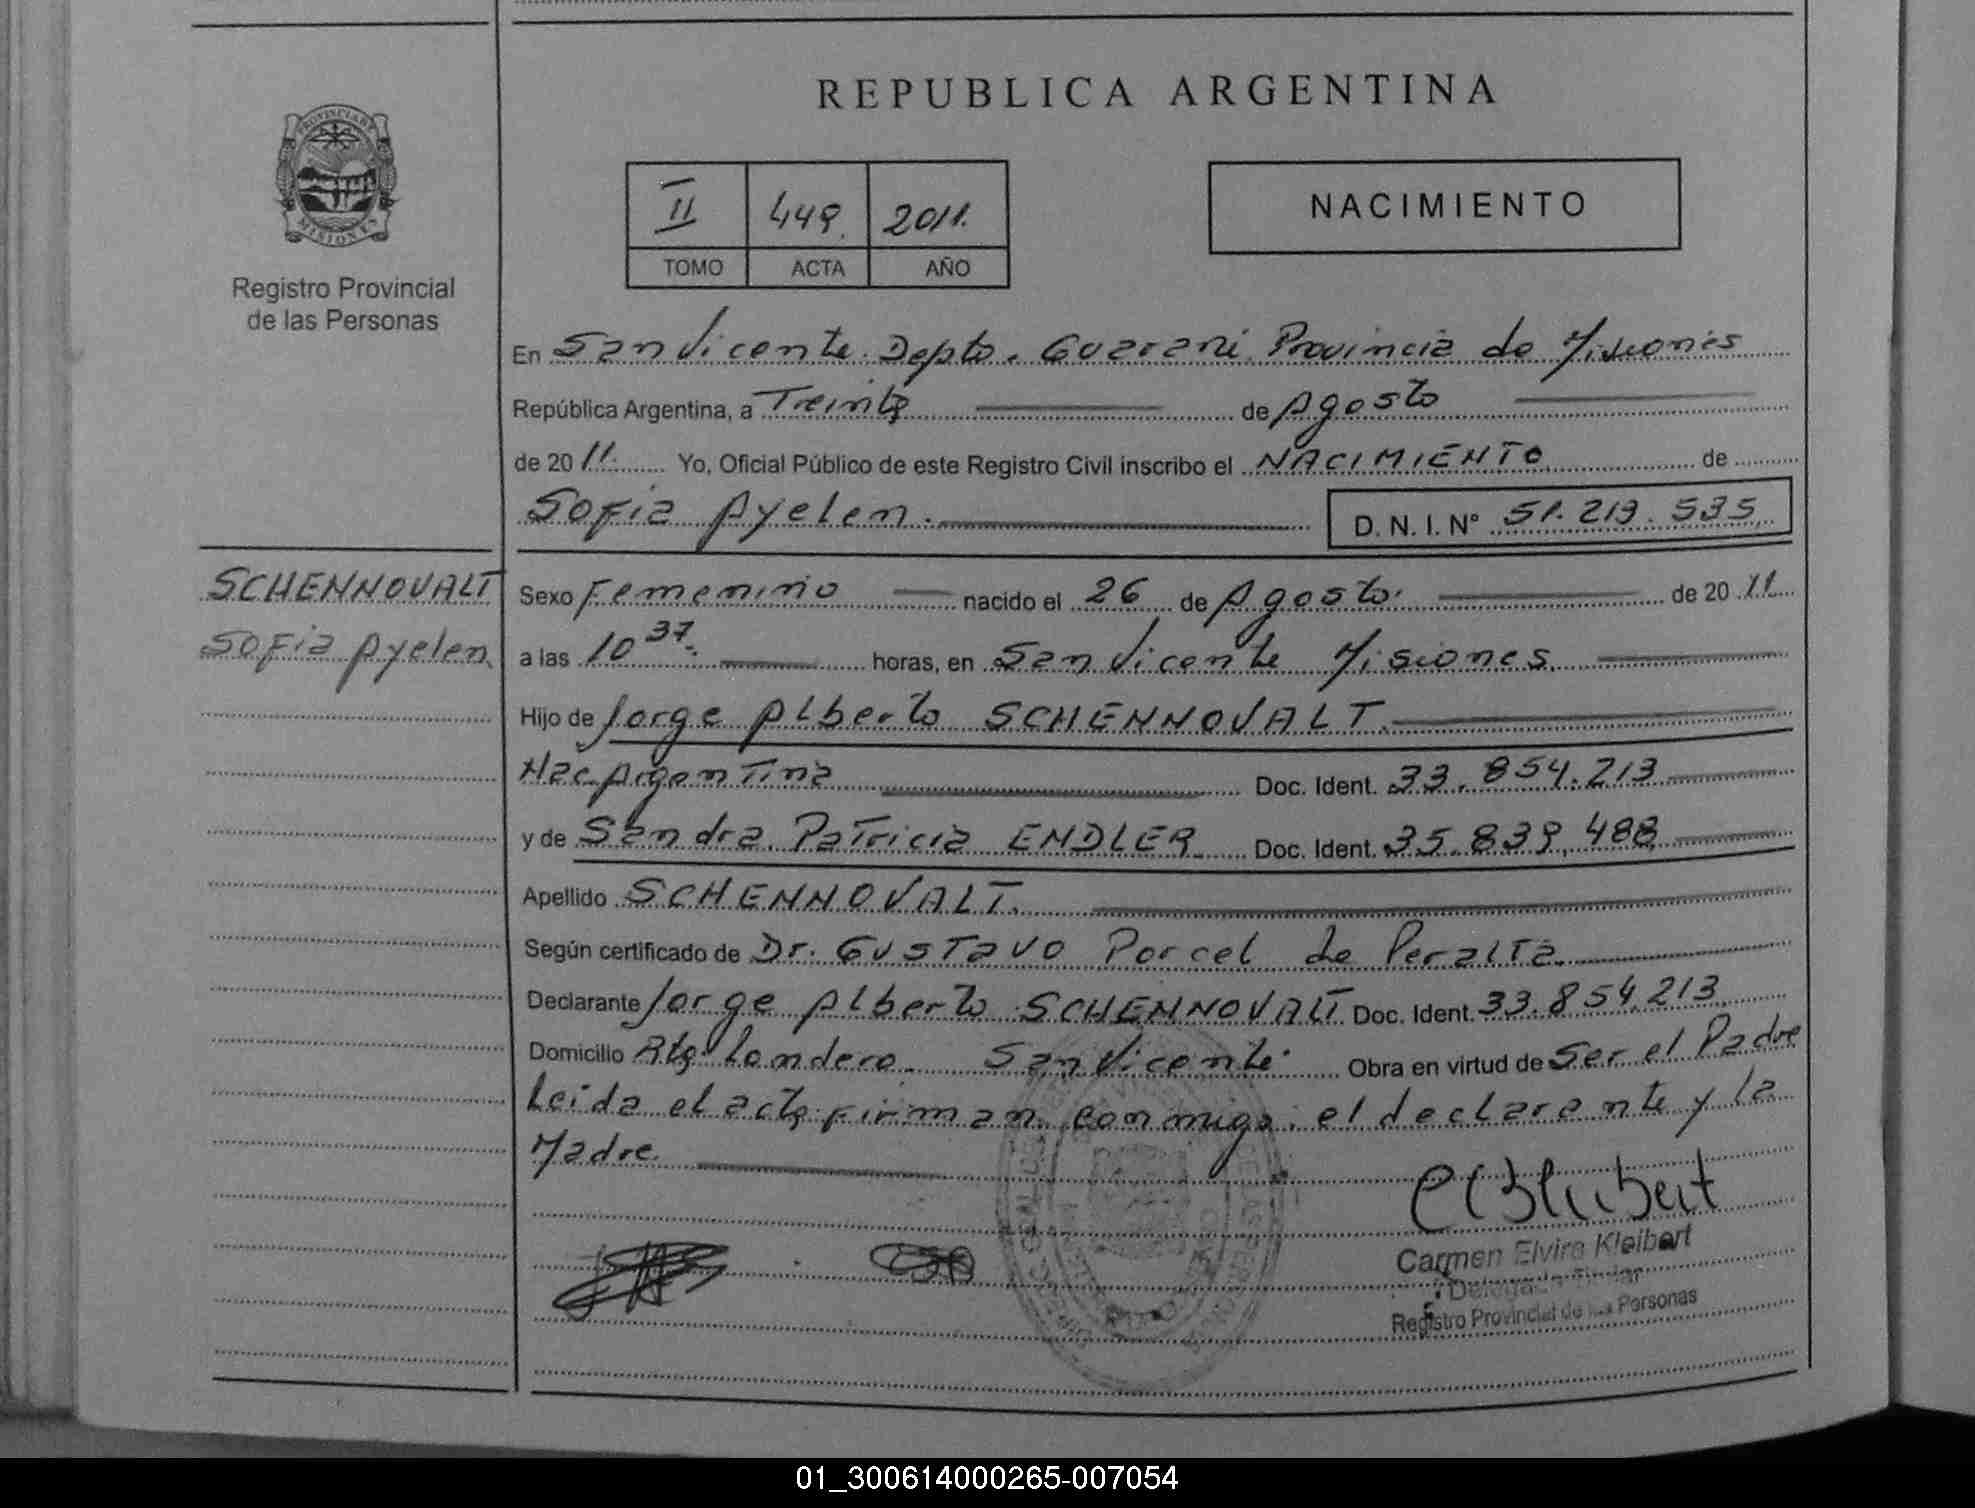 REPUBLICA ARGENTINA
PROVINCIA DE
MISIONES
Registro Provincial
de las Personas
II 449. 2011.
TOMO ACTA AÑO
NACIMIENTO
En San Vicente. Depto. Guarani Provincia de Misiones
República Argentina, a Treinta de Agosto
de 20 11. Yo, Oficial Público de este Registro Civil inscribo el NACIMIENTO de
Sofia Ayelen. D. N. I. N° 51.213.535
SCHENNOVALT
Sofia Ayelen
Sexo Femenino nacido el 26 de Agosto. de 20 11
a las 10 37. horas, en San Vicente Misiones
Hijo de Jorge Alberto SCHENNOVALT
Nac. Argentina Doc. Ident. 33.854.213
y de Sandra Patricia ENDLER Doc. Ident. 35.839.488
Apellido SCHENNOVALT.
Según certificado de Dr. Gustavo Porcel de Peralta
Declarante Jorge Alberto SCHENNOVALT Doc. Ident. 33.854.213
Domicilio Londero San Vicente. Obra en virtud de Ser el Padre
Leida el acta firman conmigo el declarante y la
Madre.
Carmen Elvira Kleibert
Delegada Titular
Registro Provincial de las Personas
01_300614000265-007054